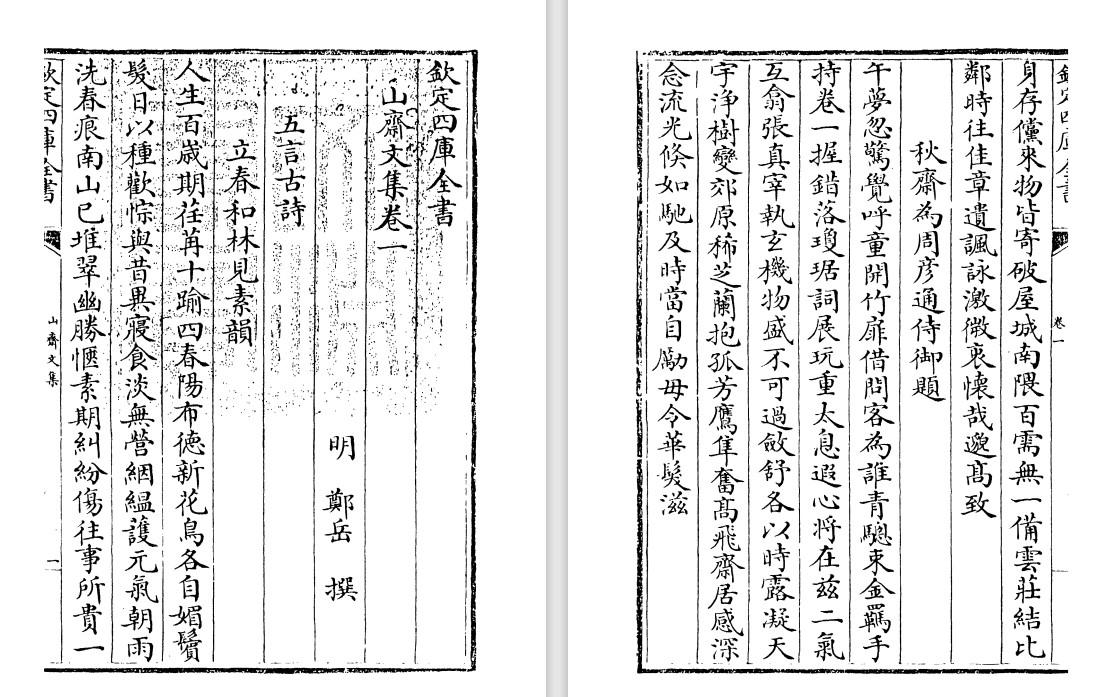 欽定四庫全書
山齋文集卷一
明 鄭岳 撰
五言古詩
立春和林見素韻
人生百歲期荏苒十踰四春陽布德新花鳥各自媚鬢
髮日以種歡悰與昔異寢食淡無營絪縕護元氣朝雨
洗春痕南山已堆翠幽勝愜素期糾紛傷往事所貴一
欽定四庫全書
山齋文集
一
欽定四庫全書
卷一
身存儻來物皆寄破屋城南隈百需無一備雲莊結比
鄰時往佳章遺諷詠激微衷懷哉邈髙致
秋齋為周彦通侍御題
午夢忽驚覺呼童開竹扉借問客為誰青驄束金羈手
持卷一握錯落瓊琚詞展玩重太息遐心將在兹二氣
互翕張真宰執玄機物盛不可過斂舒各以時露凝天
宇浄樹變郊原稀芝蘭抱孤芳鷹隼奮髙飛齋居感深
念流光倐如馳及時當自勵毋令華髮滋